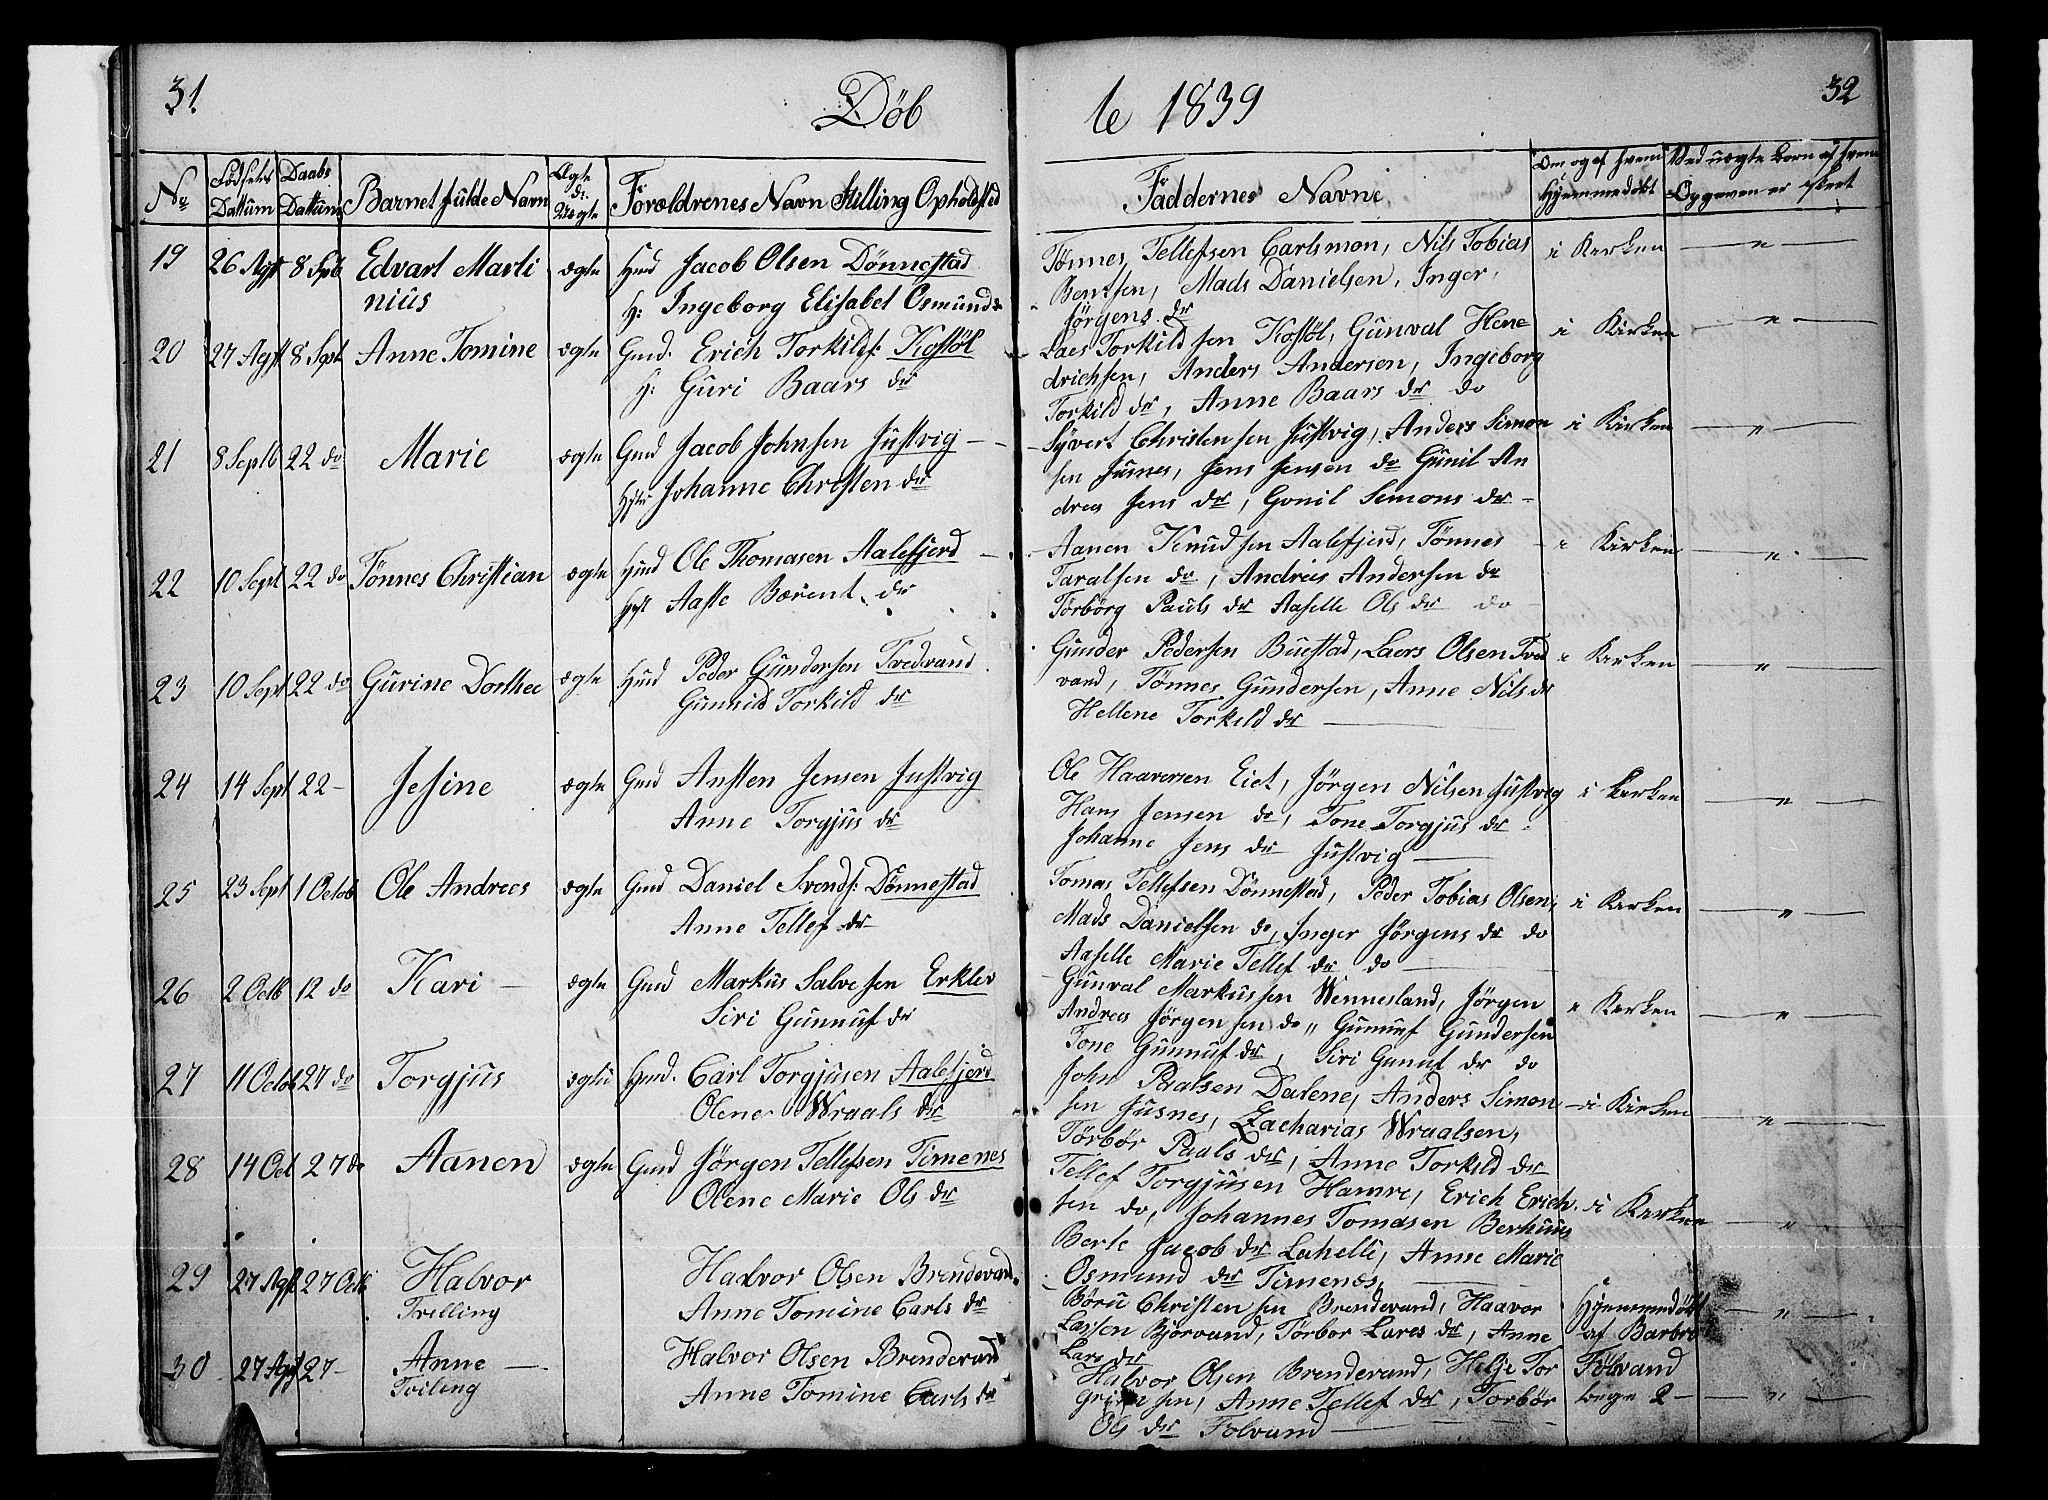 31.
Döb
te 1839
32
No
Födsels Dattum
Daabs Dattum
Barnet fulde Navn
Ægte el: Uægte
Foroldrenes Navn Stilling Opholdsted
Faddernes Navne
Om og af hvem Hjemmedöbt
Ved uægte born af hvem Opgaven er skeet
19 26 Agst 8 Sptb Edvart Marti ægte Hmd Jacob Olsen Dönnestad
nius H: Ingeborg Elisabet Osmunds
Tönnes Tellefsen Carlsmon, Nils Tobias i Kirken — " —
Bentsen, Mads Danielsen, Inger
Jörgens dr
20 27 Agst 8 Sept Anne Tomine ægte Gmd. Erich Torkilds: Kostöl
H: Guri Baars dr
Laes Torkild sen Kostöl, Gunval Hene i Kirken — " —
drichsen, Anders Andersen, Ingeborg
Torkild dr, Anne Baars dr do
21 8 Septb 22 do Marie ægte Gmd Jacob Johnsen Justvig
Hstr Johanne Christen dr
Syvert Christensen Justvig, Anders Simon i Kirken — " —
sen Jusnes, Jens Jensen do Gunil An
drea Jens dr, Gonil Semons dr
22 10 Sept 22 do Tönnes Christian ægte Hmd Ole Thomasen Aalefjerd
Hst Aaste Bærent dr
Aanen Knudsen Aalefjerd, Tönnes i Kirken — " —
Taralsen do, Andreas Andersen do
Torborg Pauls dr Aaselle Ols dr do
23 10 Sept 22 do Gurine Dorthee ægte Hmd Peder Gundersen Tredvand
Gunnild Torkild dr
Gunder Pedersen Buestad, Laers Olsen Tred i Kirken — " —
vand, Tönnes Gundersen, Anne Nils dr
Hellene Torkild dr
24 14 Sept 22 - Jesine ægte Gmd Ansten Jensen Justvig
Anne Torgjus dr
Ole Haaversen Eiet, Jörgen Nilsen Justvig i Kirken — " —
Hans Jensen do, Tone Torgjus dr
Johanne Jens dr Justvig
25 23 Sept 1 Octob Ole Andreas ægte Gmd Daniel Svends: Dönnestad
Anne Tellef dr
Tomas Tellefsen Dönnestad, Peder Tobias Olsen, i Kirken — " —
Mads Danielsen do, Inger Jörgens dr do
Aaselle Marie Tellef dr do
26 2 Octb 12 do Kari ægte Gmd Markus Salvesen Erklev
Siri Gunnuf dr
Gunval Markussen Wennesland, Jörgen i Kirken — " —
Andreas Jörgensen do " Gunuf Gundersen
Tone Gunnuf dr, Siri Gunuf dr do
27 11 Octob 27 do Torgjus ægte Hmd. Carl Torgjusen Aalefjerd
Olene Wraals dr
John Paalsen Dalene, Anders Simon i Kirken — " —
sen Jusnes, Zacharias Wraalsen,
Torbör Paals dr, Anne Torkild dr
28 14 Oct 27 do Aanen ægte Gmd Jörgen Tellefsen Timenes
Olene Marie Ols dr
Tellef Torgjusen Hamre, Erich Erich i Kirken — " —
sen do, Johannes Tomasen Berhuus
Berte Jacob dr Lahelle, Anne Marie
Osmund dr Timenæs,
29 27 Agst 27 Octb Halvor Halvor Olsen Brendevand
Tvelling Anne Tomine Carls dr
Böru Christen sen Brendevand, Haavor Hjemmedöbt — " —
Lassen Bjorvand, Torbor Lares dr, Anne af Barbro
Lars dr
30 27 Agst 27 - Anne Halvor Olsen Brendevand
Tvileng Anne Tomine Carls dr
Halvor Olsen Brendevand, Helje Tor Folvand
grimsen, Anne Tellef dr, Torbör bege 2 — " —
Ols dr Folvand